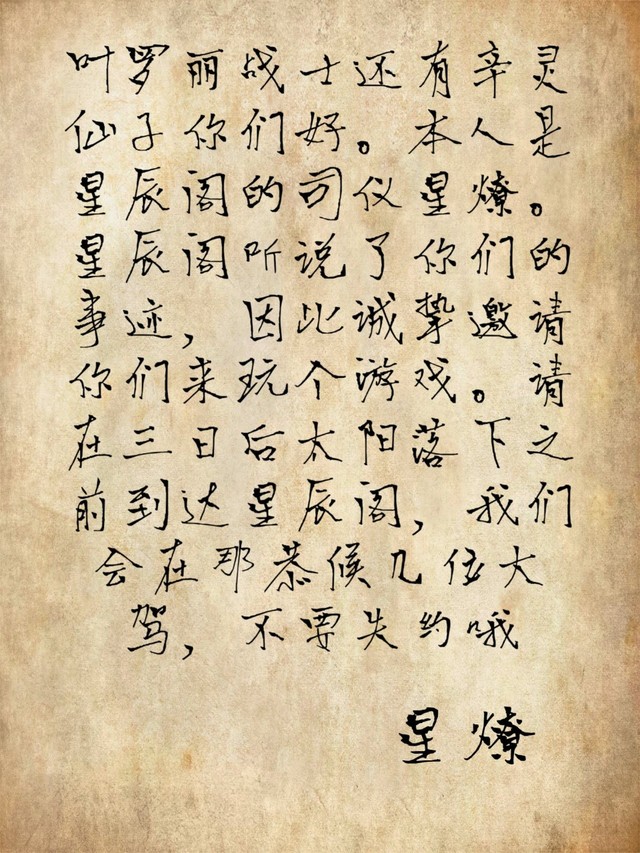 叶罗丽战士还有辛灵
仙子你们好。本人是
星辰阁的司仪星燎。
星辰阁听说了你们的
事迹，因此诚挚邀请
你们来玩个游戏。请
在三日后太阳落下之
前到达星辰阁，我们
会在那恭候几位大
驾，不要失约哦
星燎